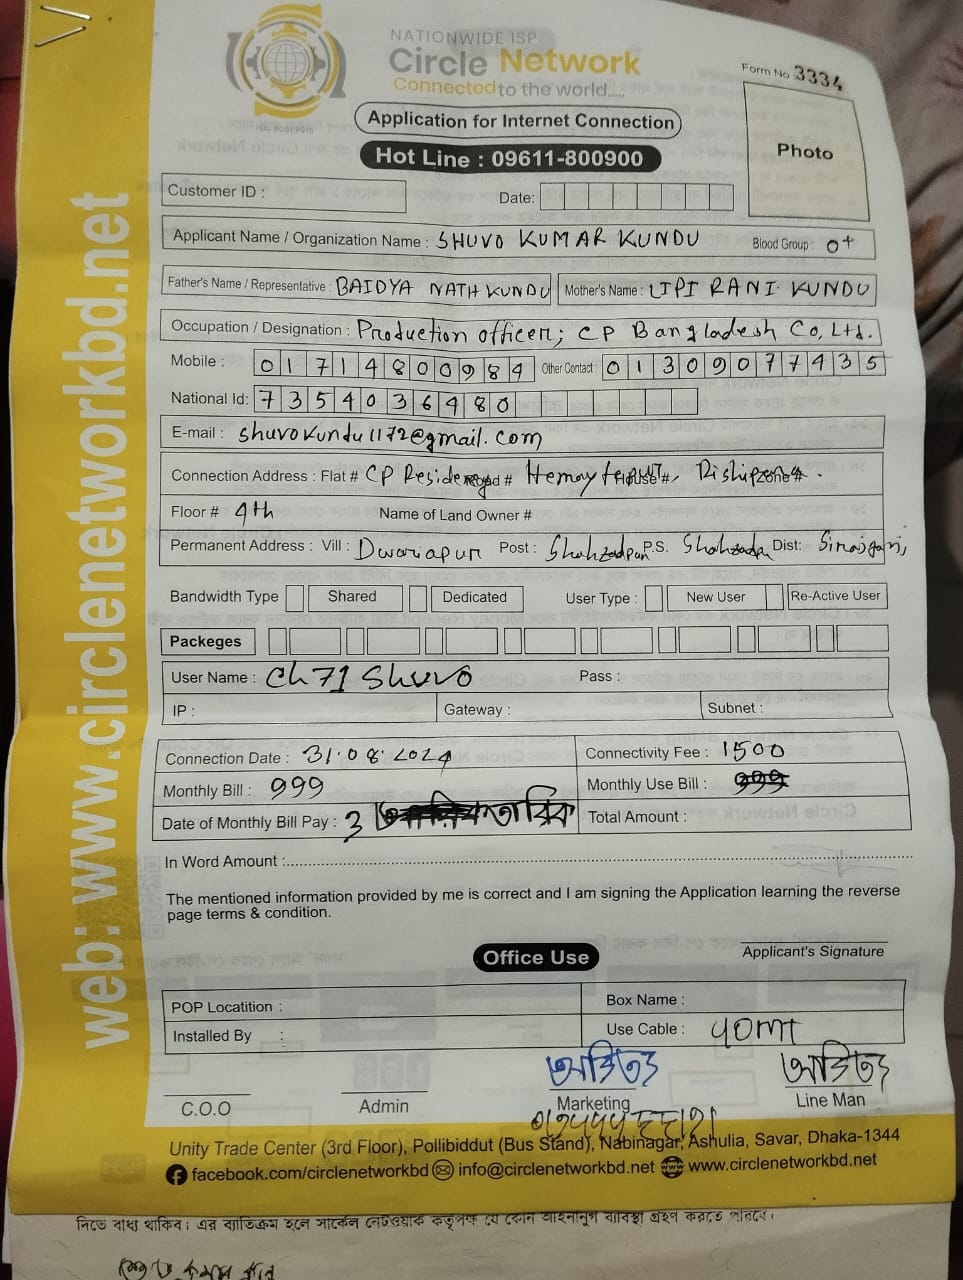 NATIONWIDE ISP
Circle Network
Connected to the world.....
ISO 9001:2015
Form No 3334
Application for Internet Connection
Photo
Hot Line : 09611-800900
Customer ID :
Date:
Applicant Name / Organization Name : SHUVO KUMAR KUNDU Blood Group : O+
Father's Name / Representative : BAIDYA NATH KUNDU Mother's Name : LIPI RANI KUNDU
Occupation / Designation : Production officer; CP Bangladesh Co, Ltd.
Mobile : 01714800984 Other Contact : 01309077435
National Id: 7354036480
E-mail : shuvokundu1172@gmail.com
Connection Address : Flat # CP Residency Road # Hemayetpur House #, Rishipara Zone #
Floor # 4th Name of Land Owner #
Permanent Address : Vill : Dwariapur Post : Shahzadpur P.S. Shahzadpur Dist: Sirajganj,
Bandwidth Type Shared Dedicated User Type : New User Re-Active User
Packeges
User Name : Ch71 Shuvo Pass :
IP : Gateway : Subnet :
Connection Date : 31.08.2024 Connectivity Fee : 1500
Monthly Bill : 999 Monthly Use Bill : 999
Date of Monthly Bill Pay : 3 তারিখ Total Amount :
In Word Amount :
The mentioned information provided by me is correct and I am signing the Application learning the reverse
page terms & condition.
Applicant's Signature
Office Use
POP Locatition : Box Name :
Installed By : Use Cable : 40mt
C.O.O Admin Marketing Line Man
Unity Trade Center (3rd Floor), Pollibiddut (Bus Stand), Nabinagar, Ashulia, Savar, Dhaka-1344
facebook.com/circlenetworkbd info@circlenetworkbd.net www.circlenetworkbd.net
web: www.circlenetworkbd.net
দিতে বাধ্য থাকিব। এর ব্যতিক্রম হলে সার্কেল নেটওয়ার্ক কতৃপক্ষ যে কোন আইনানুগ ব্যাবস্থা গ্রহণ করতে পারবে।